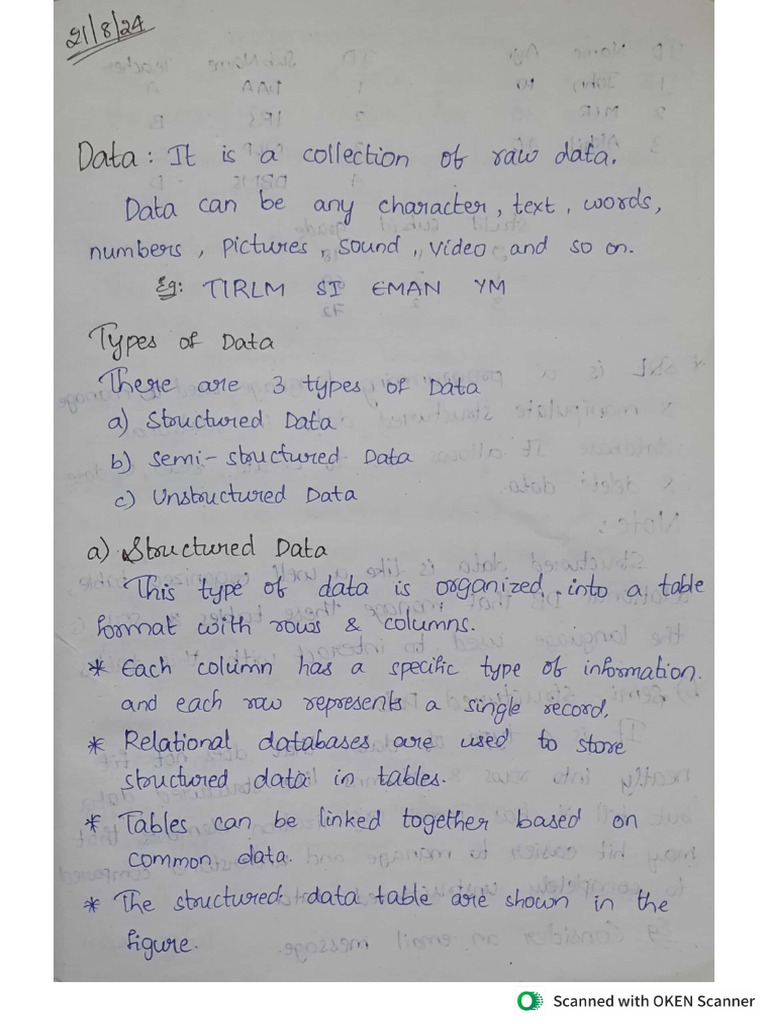 21/8/24
Data: It is a collection of raw data.
Data can be any character, text, words,
numbers, pictures, sound, video and so on.
Eg: TIRLM SI EMAN YM
Types of Data
There are 3 types of Data
a) Structured Data
b) Semi-structured Data
c) Unstructured Data
a) Structured Data
This type of data is organized into a table
format with rows & columns.
* Each column has a specific type of information.
and each row represents a single record.
* Relational databases are used to store
structured data in tables.
* Tables can be linked together based on
common data.
* The structured data table are shown in the
figure.
Scanned with OKEN Scanner